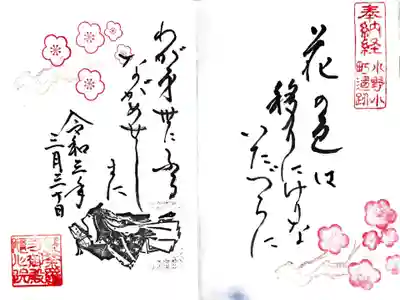 奉納経
小野小
町遺跡
花の色は
移りにけりな
いたづらに
わが身世にふる
ながめせし
まに
令和三年
三月三十日